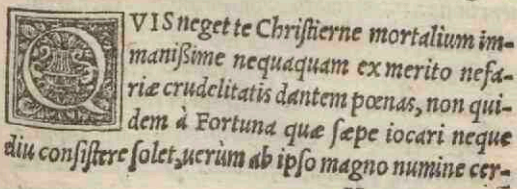 QVIS neget te Christierne mortalium im-
manißime nequaquam ex merito nefa-
riæ crudelitatis dantem pœnas, non qui-
dem à Fortuna quæ sæpe iocari neque
diu consistere solet, uerùm ab ipso magno numine cer-